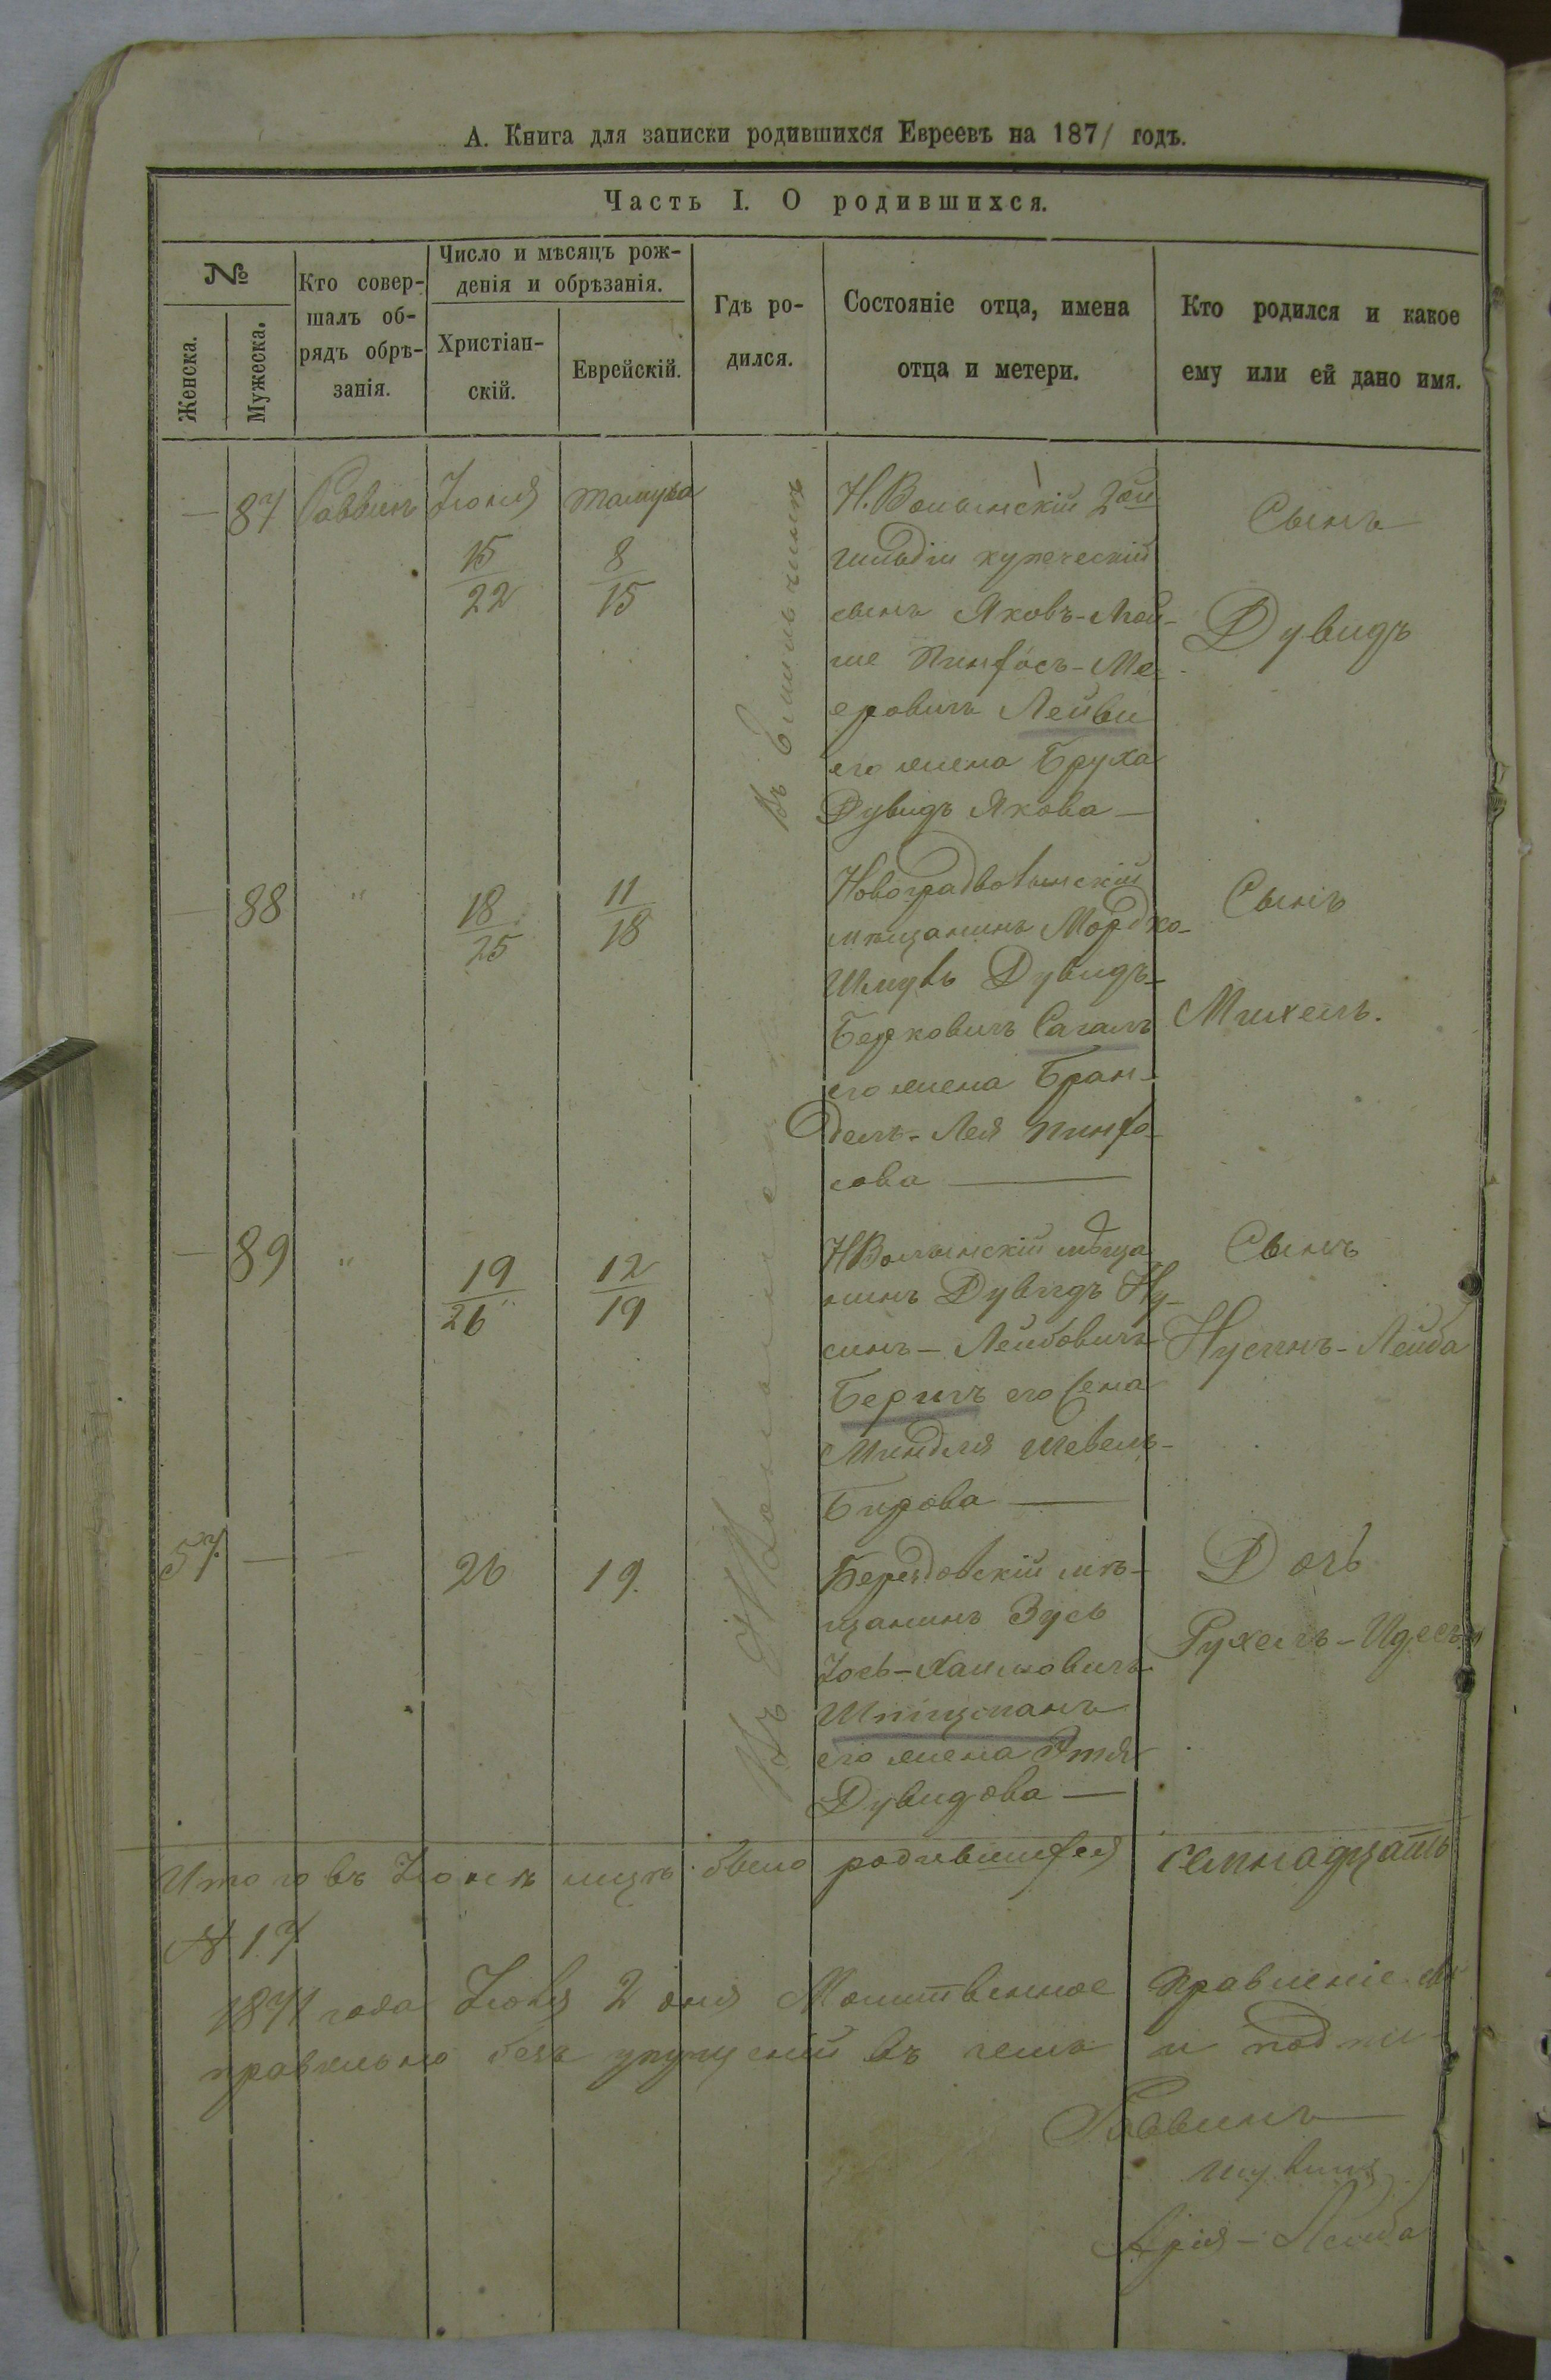 А. Книга для записки родившихся Евреевъ на 1871 годъ.
Часть I. О родившихся.
№
Женска.
Мужеска.
Кто совер-
шалъ об-
рядъ обрѣ-
занія.
Число и мѣсяцъ рож-
денія и обрѣзанія.
Христіан-
скій.
Еврейскій.
Гдѣ ро-
дился.
Состояніе отца, имена
отца и метери.
Кто родился и какое
ему или ей дано имя.
— 87 Раввинъ
Іюня
15
22
тамуза
8
15
Въ Емильчинъ
Н.Волынскій 2ой
гильдіи купеческій
сынъ Яковъ-Мой-
ше Пинхосъ-Ме-
еровичъ Лейви
его жена Бруха
Дувидъ Якова —
Сынъ
Дувидъ
— 88 "
18
25
11
18
Новоградволынскій
мѣщанинъ Мордко-
Шмуль Дувидъ-
Берковичъ Сагалъ
его жена Бран-
дель-Лея Пинхо-
сова —
Сынъ
Михель.
— 89 "
19
26
12
19
НВолынскій мѣща
нинъ Дувидъ Ну-
синъ-Лейбовичъ
Беричъ его жена
Миндля Шевель-
Бирова —
Сынъ
Нусинъ-Лейба
57. — —
26
19.
Берездовскій мѣ-
щанинъ Зусь
Іось-Хаимовичъ
Шпицманъ
его жена Этля
Дувидова —
Дочь
Рухель-Идесъ
Итого въ Іюнѣ мцѣ было родившихся семнадцать
№ 17
1871 года Іюля 2 дня Молитвенное Правленіе
правильно безъ упущеній въ чемъ и подпи-
Раввинъ
Арія-Лейба